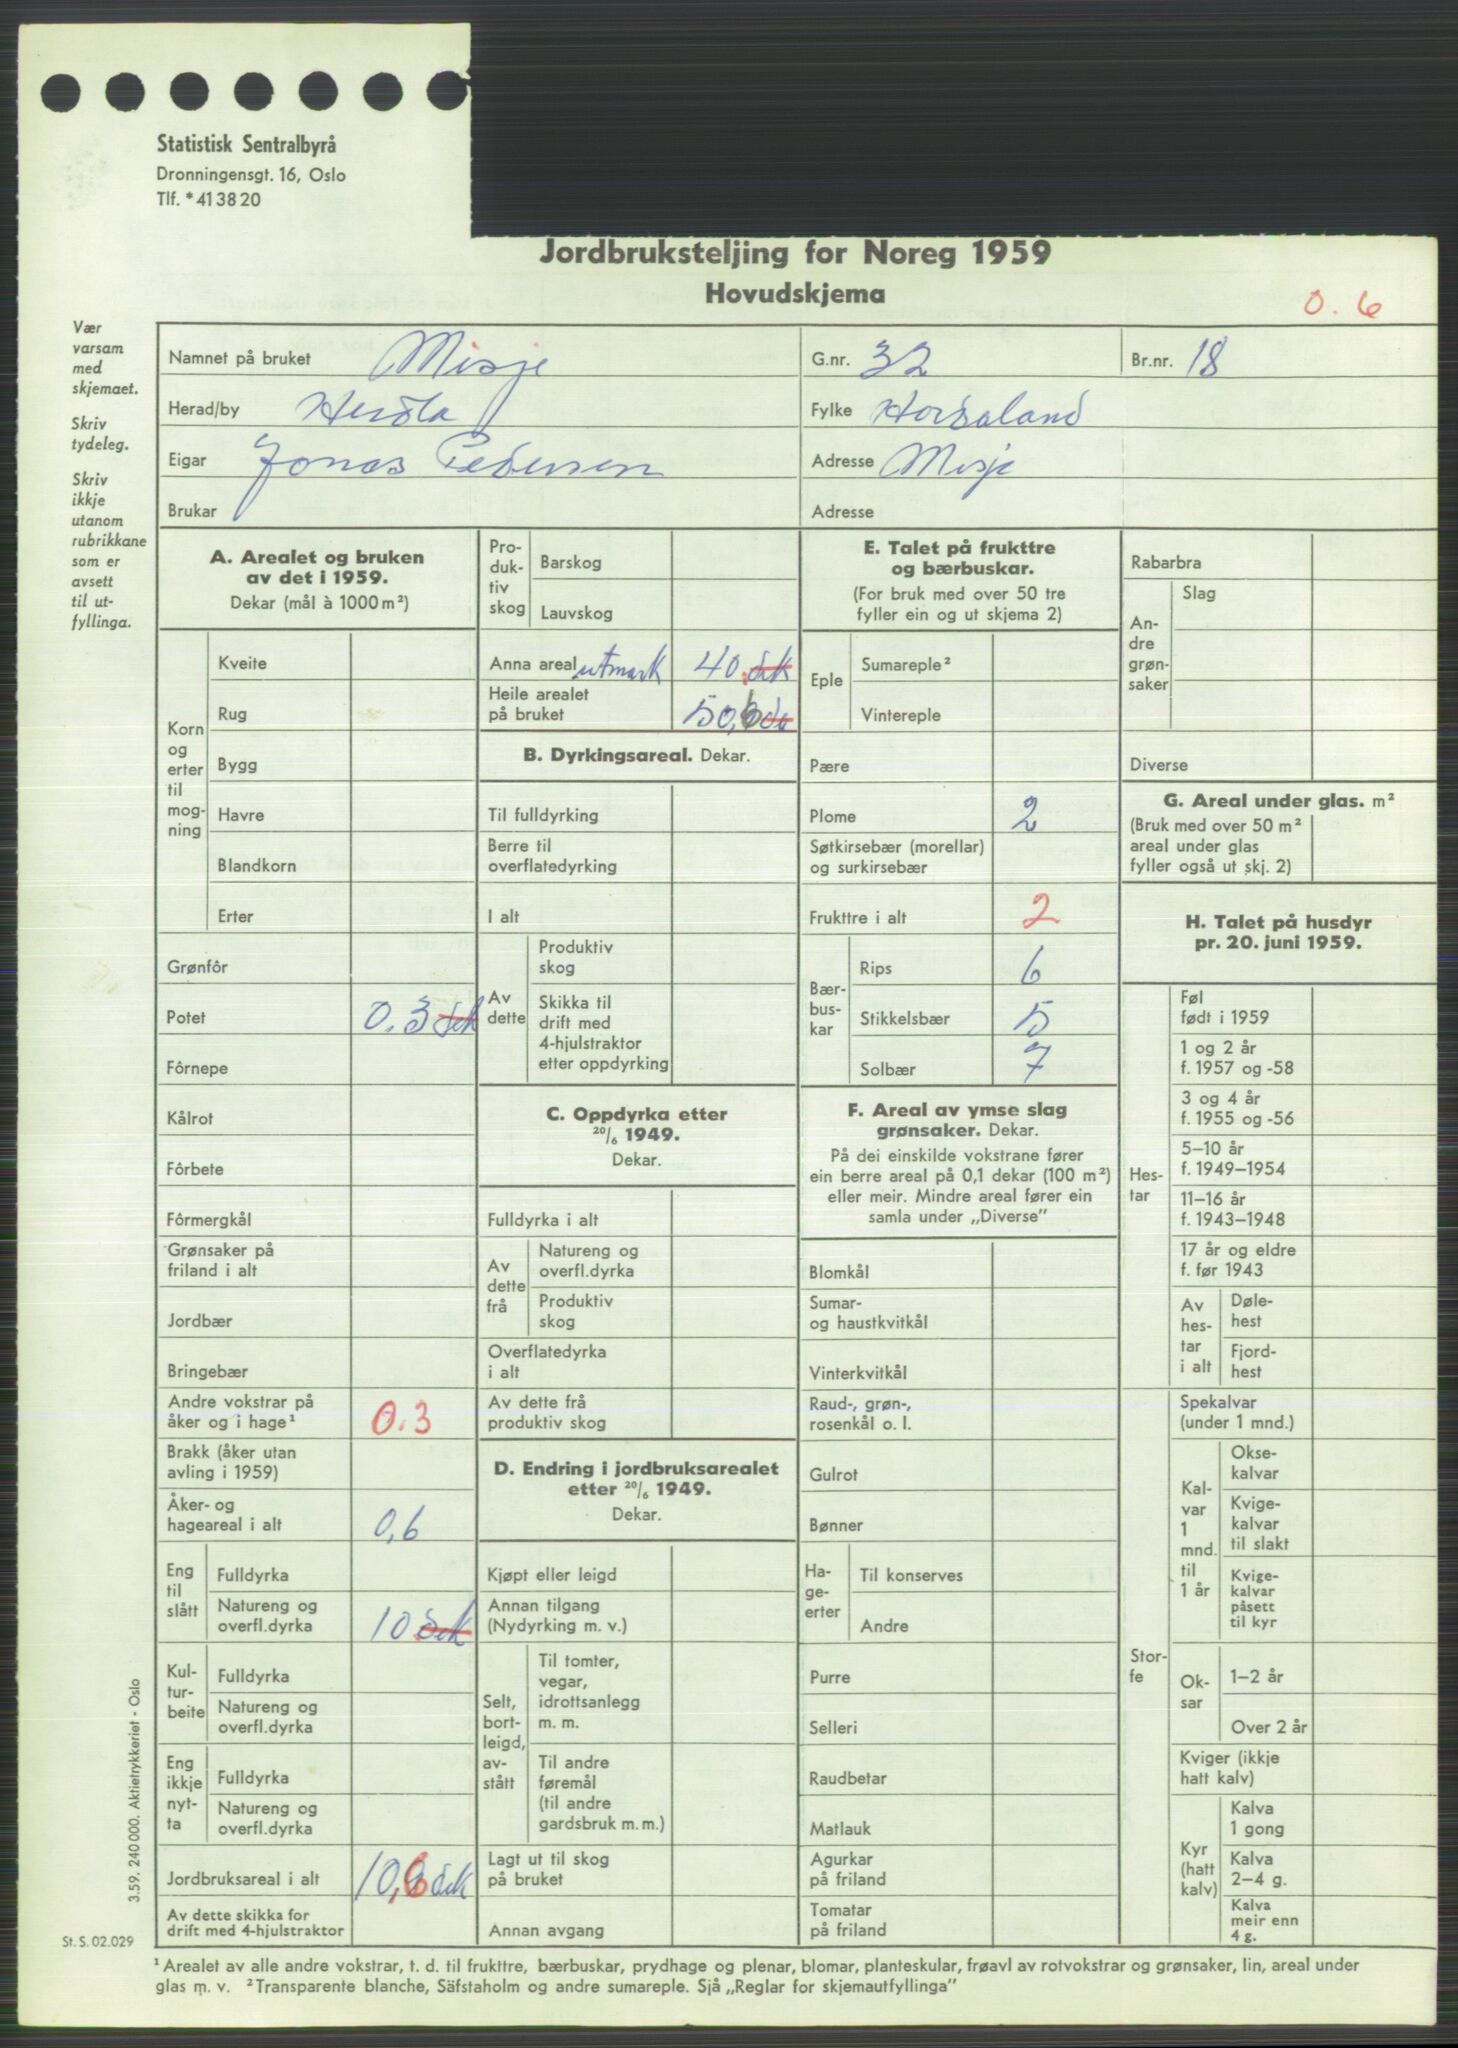 Statistisk Sentralbyrå
Dronningensgt. 16, Oslo
Tlf. * 41 38 20
Jordbruksteljing for Noreg 1959
Hovudskjema
0.6
Vær
varsam
med
skjemaet.
Skriv
tydeleg.
Skriv
ikkje
utanom
rubrikkane
som er
avsett
til ut-
fyllinga.
Namnet på bruket Misje G.nr. 32 Br.nr. 18
Herad/by Herdla Fylke Hordaland
Eigar Jonas Pedersen Adresse Misje
Brukar Adresse
A. Arealet og bruken
av det i 1959.
Dekar (mål à 1000 m²)
Korn
og
erter
til
mog-
ning
Kveite
Rug
Bygg
Havre
Blandkorn
Erter
Grønfôr
Potet 0.3 dek
Fôrnepe
Kålrot
Fôrbete
Fôrmergkål
Grønsaker på
friland i alt
Jordbær
Bringebær
Andre vokstrar på
åker og i hage¹ 0.3
Brakk (åker utan
avling i 1959)
Åker- og
hageareal i alt 0,6
Eng
til
slått
Fulldyrka
Natureng og
overfl.dyrka 10 dek
Kul-
tur-
beite
Fulldyrka
Natureng og
overfl.dyrka
Eng
ikkje
nyt-
ta
Fulldyrka
Natureng og
overfl.dyrka
Jordbruksareal i alt 10,6 dek
Av dette skikka for
drift med 4-hjulstraktor
Pro-
duk-
tiv
skog
Barskog
Lauvskog
Anna areal utmark 40 dek
Heile arealet
på bruket 50,6 de
B. Dyrkingsareal. Dekar.
Til fulldyrking
Berre til
overflatedyrking
I alt
Av
dette
Produktiv
skog
Skikka til
drift med
4-hjulstraktor
etter oppdyrking
C. Oppdyrka etter
20/6 1949.
Dekar.
Fulldyrka i alt
Av
dette
frå
Natureng og
overfl.dyrka
Produktiv
skog
Overflatedyrka
i alt
Av dette frå
produktiv skog
D. Endring i jordbruksarealet
etter 20/6 1949.
Dekar.
Kjøpt eller leigd
Annan tilgang
(Nydyrking m. v.)
Selt,
bort-
leigd,
av-
stått
Til tomter,
vegar,
idrottsanlegg
m. m.
Til andre
føremål
(til andre
gardsbruk m. m.)
Lagt ut til skog
på bruket
Annan avgang
E. Talet på frukttre
og bærbuskar.
(For bruk med over 50 tre
fyller ein og ut skjema 2)
Eple
Sumareple²
Vintereple
Pære
Plome 2
Søtkirsebær (morellar)
og surkirsebær
Frukttre i alt 2
Bær-
bus-
kar
Rips 6
Stikkelsbær 5
Solbær 7
F. Areal av ymse slag
grønsaker. Dekar.
På dei einskilde vokstrane fører
ein berre areal på 0,1 dekar (100 m²)
eller meir. Mindre areal fører ein
samla under „Diverse”
Blomkål
Sumar-
og haustkvitkål
Vinterkvitkål
Raud-, grøn-,
rosenkål o. l.
Gulrot
Bønner
Ha-
ge-
erter
Til konserves
Andre
Purre
Selleri
Raudbetar
Matlauk
Agurkar
på friland
Tomatar
på friland
Rabarbra
An-
dre
grøn-
saker
Slag
Diverse
G. Areal under glas. m²
(Bruk med over 50 m²
areal under glas
fyller også ut skj. 2)
H. Talet på husdyr
pr. 20. juni 1959.
Hes-
tar
Føl
født i 1959
1 og 2 år
f. 1957 og -58
3 og 4 år
f. 1955 og -56
5–10 år
f. 1949–1954
11–16 år
f. 1943–1948
17 år og eldre
f. før 1943
Av
hes-
tar
i alt
Døle-
hest
Fjord-
hest
Stor-
fe
Spekalvar
(under 1 mnd.)
Kal-
var
1
mnd.
til
1 år
Okse-
kalvar
Kvige-
kalvar
til slakt
Kvige-
kalvar
påsett
til kyr
Ok-
sar
1–2 år
Over 2 år
Kviger (ikkje
hatt kalv)
Kyr
(hatt
kalv)
Kalva
1 gong
Kalva
2–4 g.
Kalva
meir enn
4 g.
3.59. 240 000. Aktietrykkeriet - Oslo
St. S. 02.029
¹ Arealet av alle andre vokstrar, t. d. til frukttre, bærbuskar, prydhage og plenar, blomar, planteskular, frøavl av rotvokstrar og grønsaker, lin, areal under
glas m. v. ² Transparente blanche, Säfstaholm og andre sumareple. Sjå „Reglar for skjemautfyllinga”